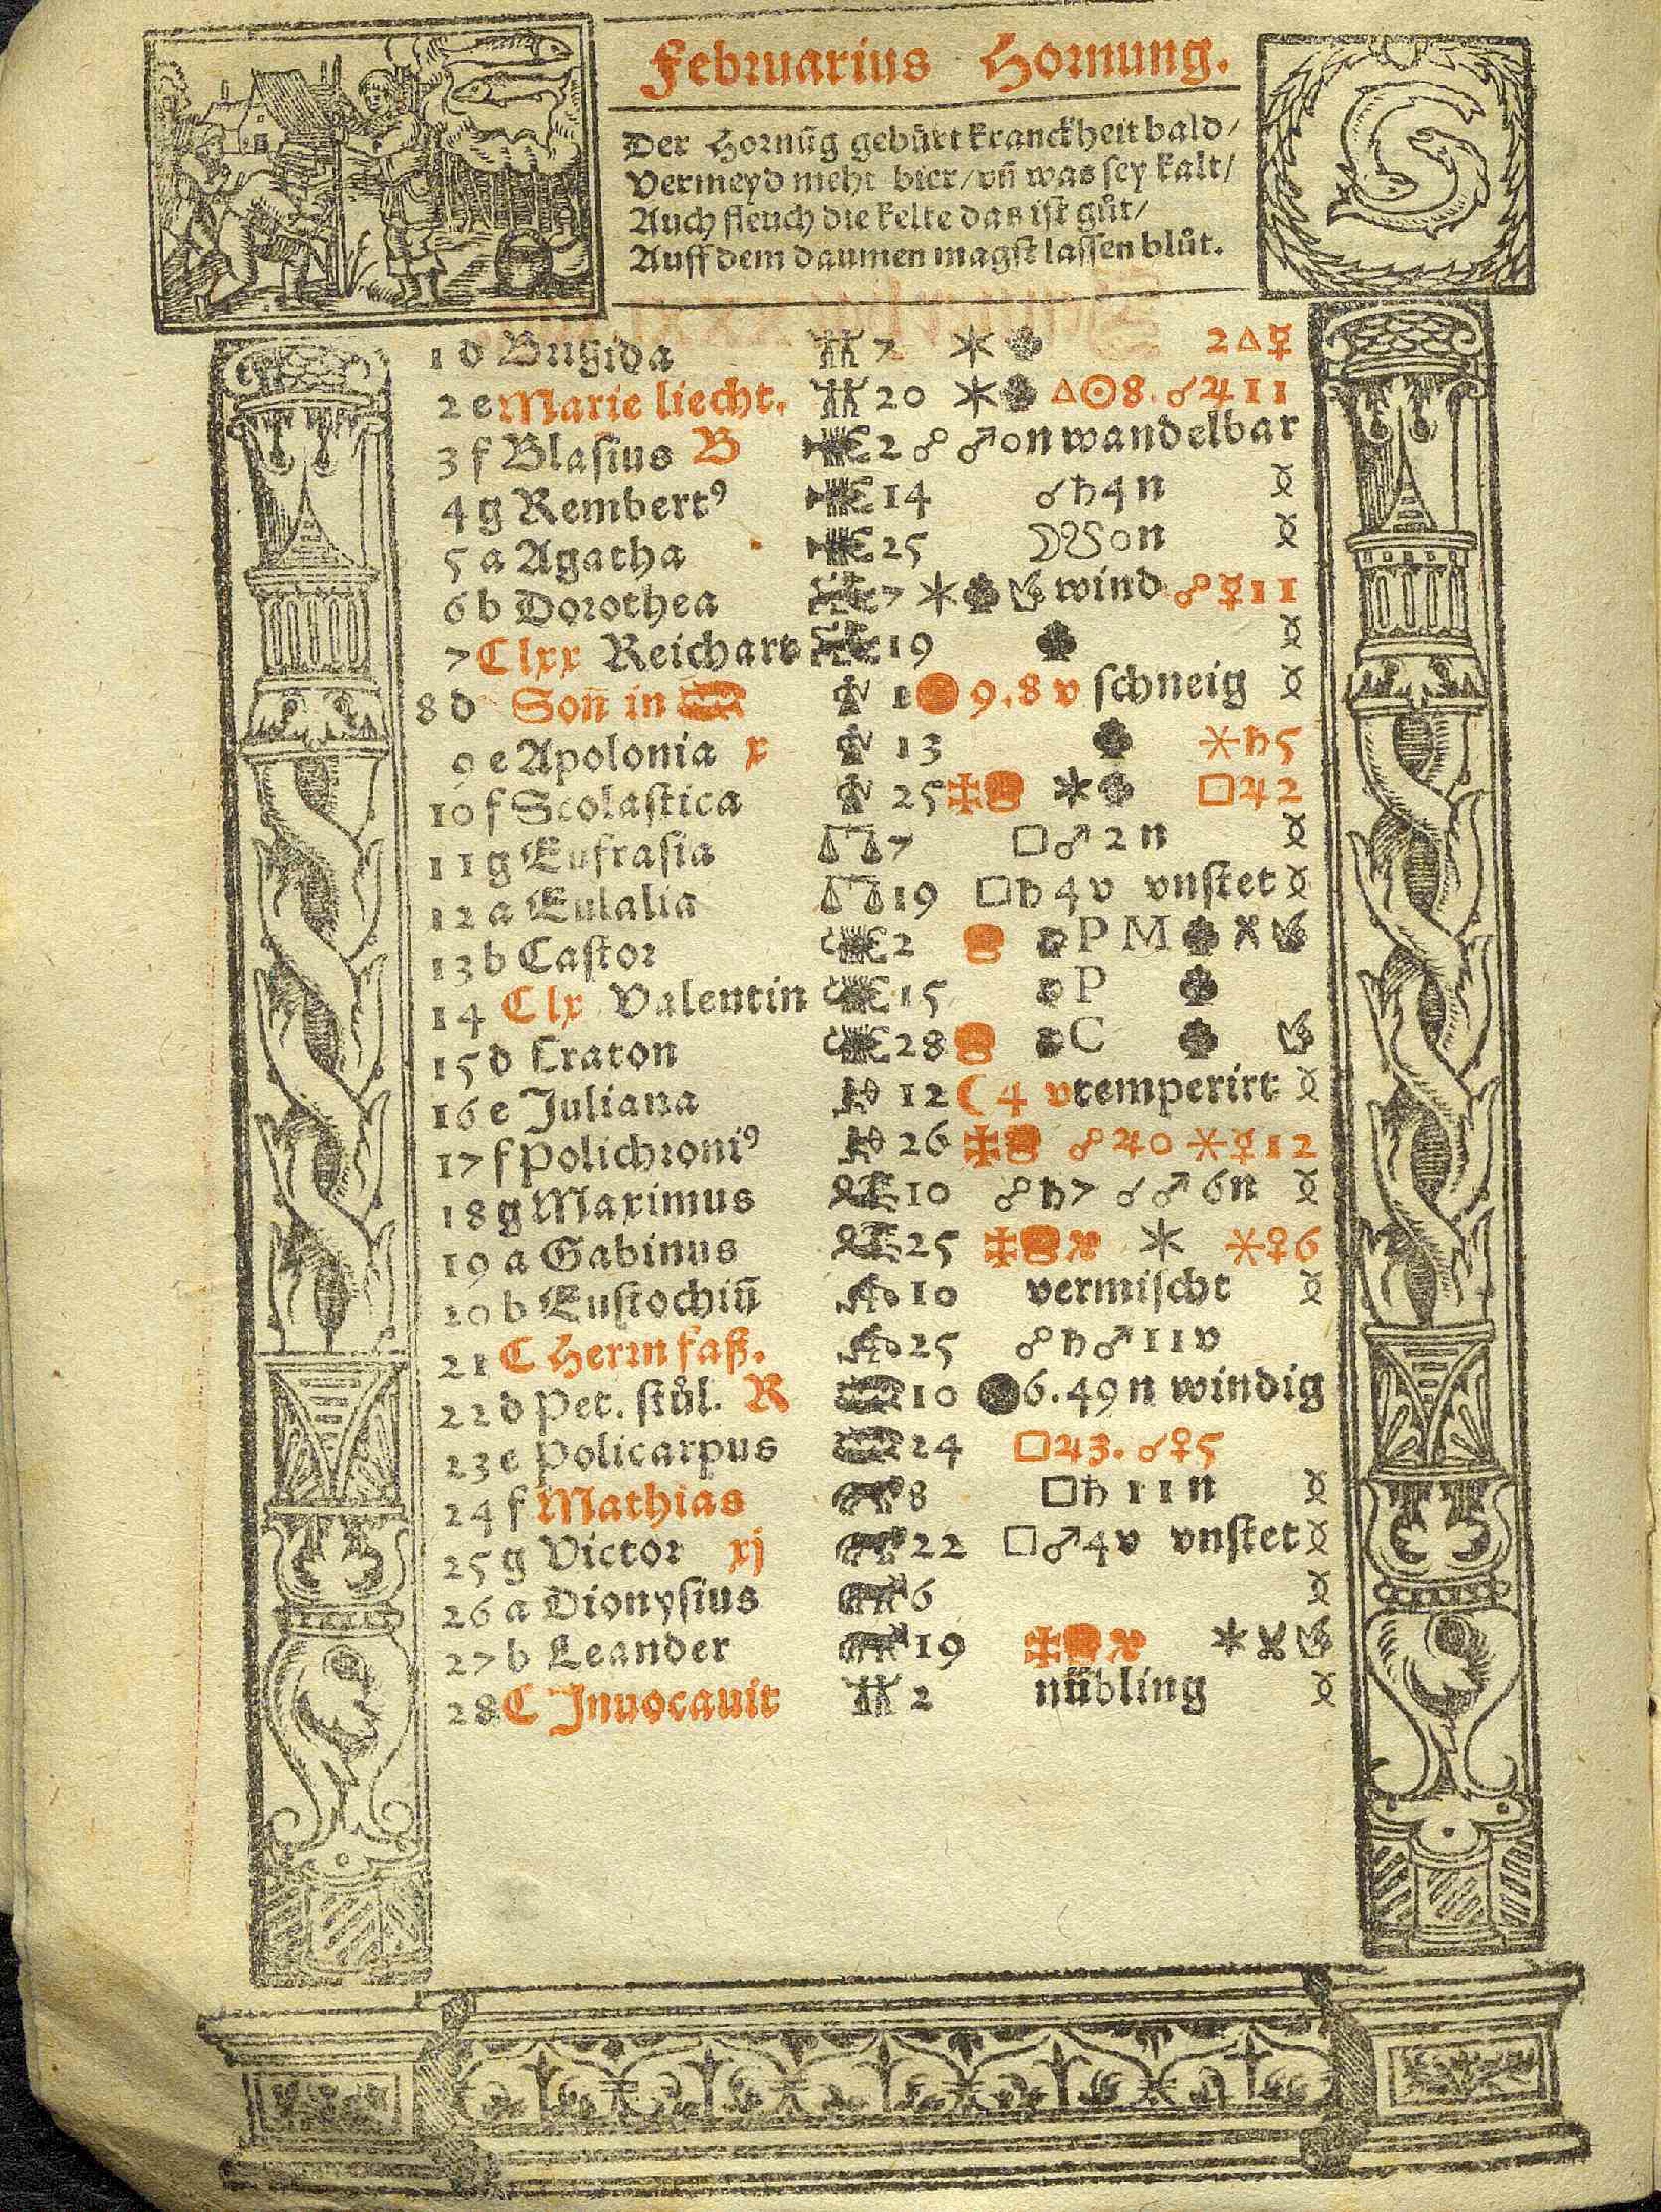 Februarius Hornung.
Der Hornūg gebürt kranckheit bald/
Vermeyd meht bier/vñ was sey kalt/
Auch fleuch die kelte das ist gůt/
Auff dem daumen magst lassen blůt.
1 d Brigida ♊ 7 ✶ ♣ 2 △ ☿
2 e Marie liecht. ♊ 20 ✶ ♣ △ ☉ 8. ☌ ♃ 11
3 f Blasius B ♋ 2 ☍ ♂ 0 n wandelbar
4 g Rembertꝰ ♋ 14 ☌ ♄ 4 n
5 a Agatha ♋ 25 ☽ ☋ 0 n
6 b Dorothea ♌ 7 ✶ ♣ wind ☍ ☿ 11
7 C lxx Reichart ♌ 19 ♣
8 d Soñ in ♓ ♍ 1 9.8 v schneig
9 e Apolonia x ♍ 13 ♣ ✶ ♄ 5
10 f Scolastica ♍ 25 ✶ ♣ □ ♃ 2
11 g Eufrasia ♎ 7 □ ♂ 2 n
12 a Eulalia ♎ 19 □ ♄ 4 v vnstet
13 b Castor ♏ 2 P M ♣
14 C lx Valentin ♏ 15 P ♣
15 d Craton ♏ 28 C ♣
16 e Juliana ♐ 12 ☾ 4 v temperirt
17 f Polichroniꝰ ♐ 26 ☍ ♃ 0 ✶ ☿ 12
18 g Maximus ♑ 10 ☍ ♄ 7 ☌ ♂ 6 n
19 a Gabinus ♑ 25 ✶ ✶ ♀ 6
20 b Eustochiū ♒ 10 vermischt
21 C Herrn faß. ♒ 25 ☍ ♄ ♂ 11 v
22 d Pet. stůl. R ♓ 10 ● 6.49 n windig
23 e Policarpus ♓ 24 □ ♃ 3. ☌ ♀ 5
24 f Mathias ♈ 8 □ ♄ 11 n
25 g Victor xj ♈ 22 □ ♂ 4 v vnstet
26 a Dionysius ♉ 6
27 b Leander ♉ 19 ✶
28 C Inuocauit ♊ 2 nübling